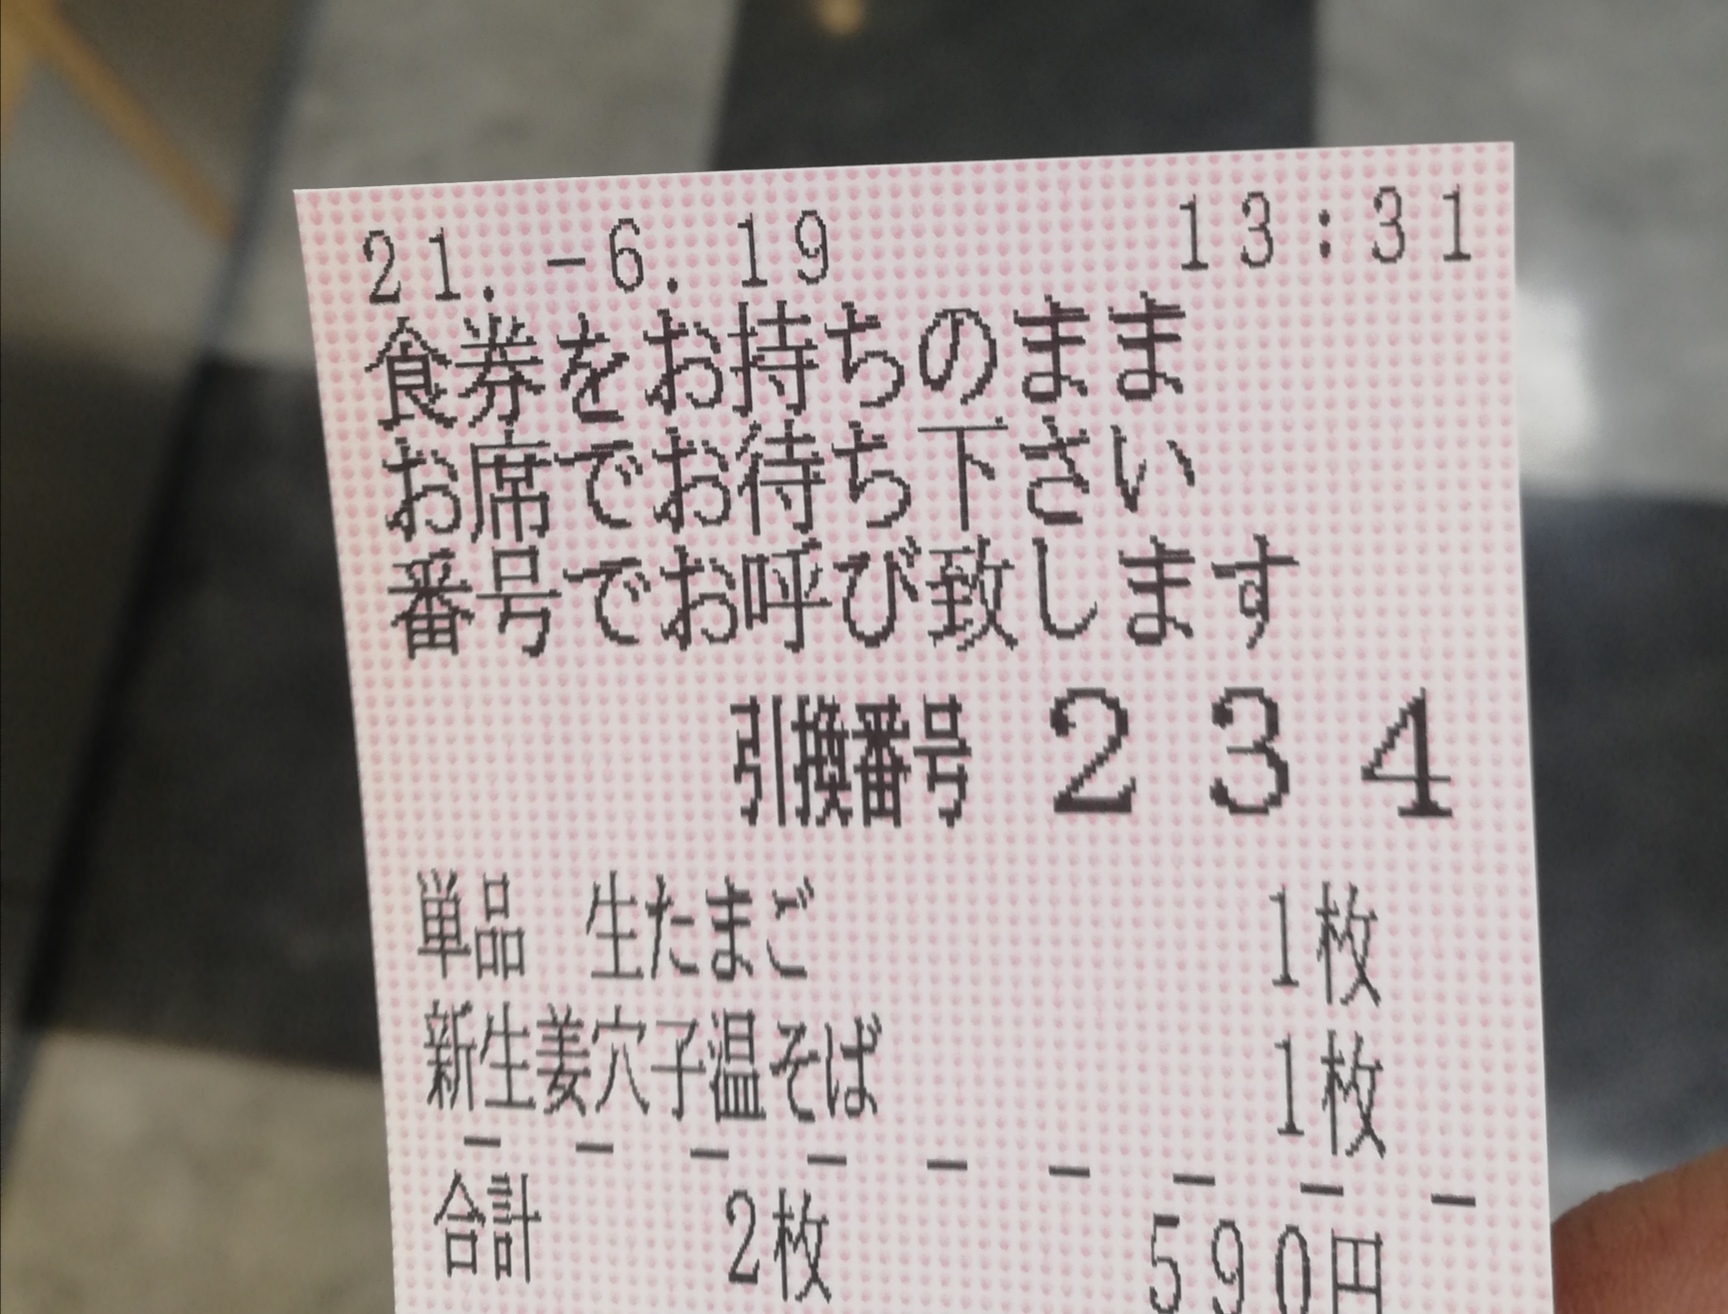 21.-6.19 13:31
食券をお持ちのまま
お席でお待ち下さい
番号でお呼び致します
引換番号 234
単品 生たまご 1枚
新生姜穴子温そば 1枚
合計 2枚 590円